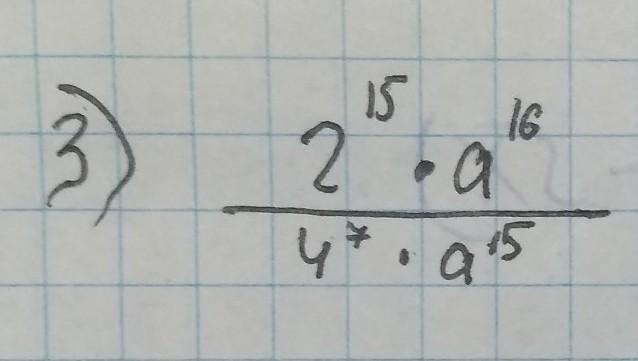 3) 2^15 · a^16
4^7 · a^15